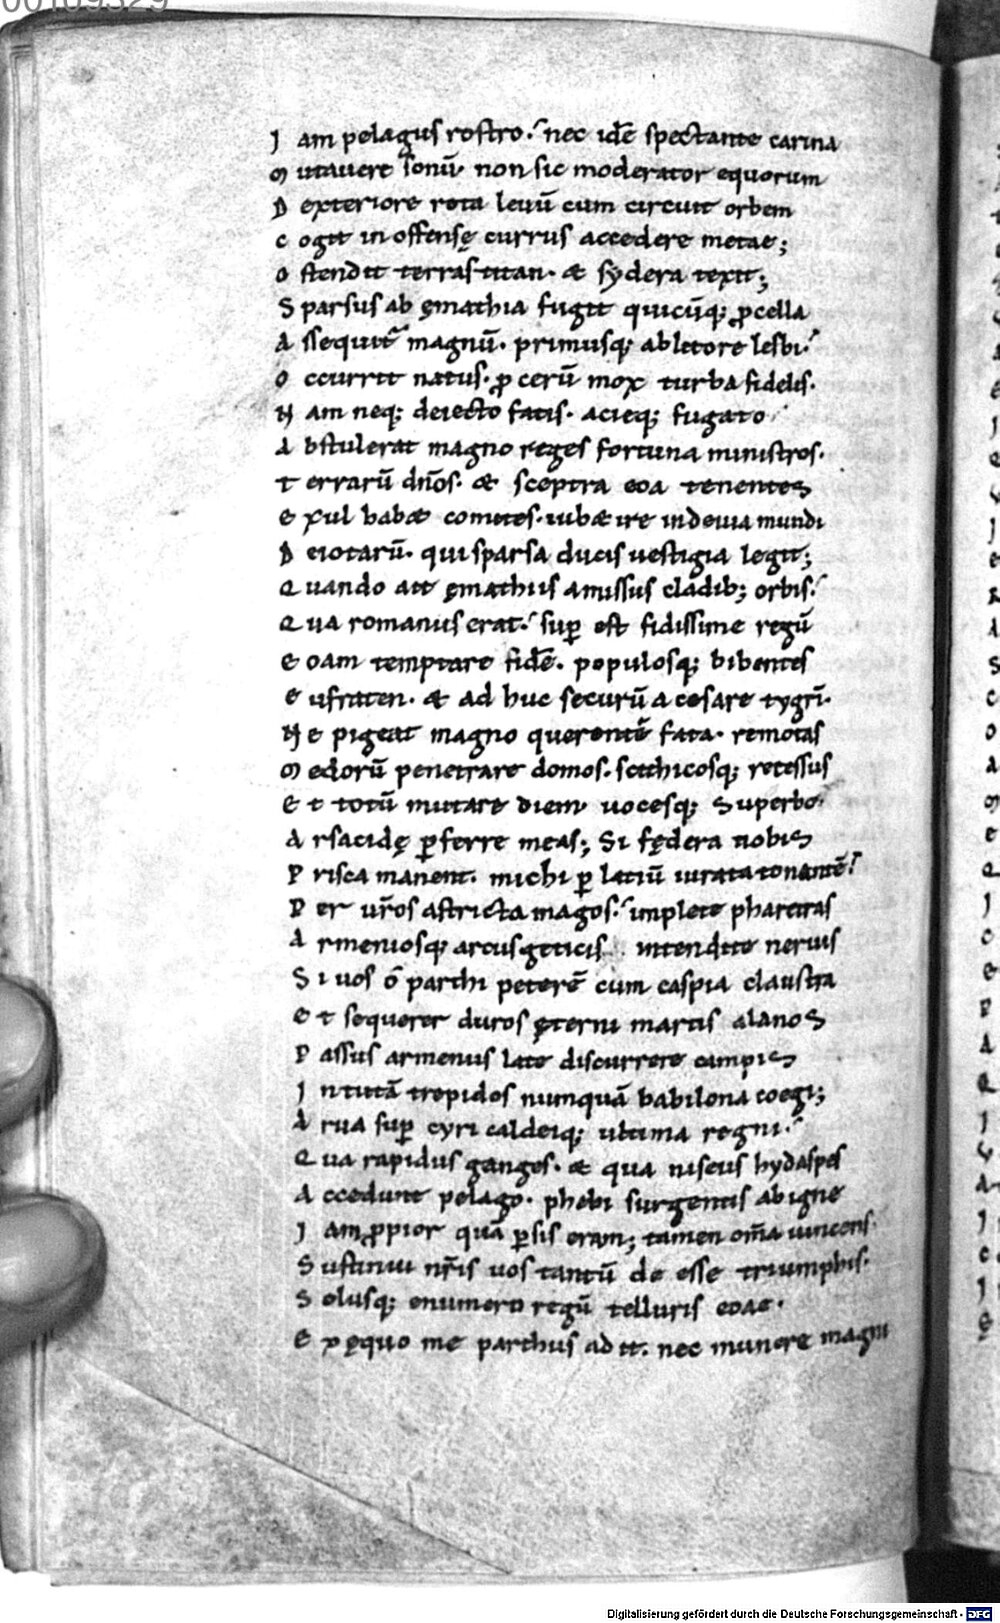 00109329
J am pelagus rostro. nec idē spectante carina
M utauere sonū. non sic moderator equorum
D exteriore rota leuū cum circuit orbem
C ogit inoffensę currus accedere metae;
O stendit terras titan. & sydera texit;
S parsus ab ęmathia fugit quicūq; ꝓcella
A ssequit᷑ magnū. primusq; a litore lesbi.
O ccurrit natus. ꝓcerū mox turba fidelis.
N am neq; deiecto fatis. acieq; fugato
A bstulerat magno reges fortuna ministros.
T errarū dn̄os. & sceptra eoa tenentes
E xul hab& comites. iub& ire in deuia mundi
D eiotarū. qui sparsa ducis uestigia legit;
Q uando ait ęmathiis amissus cladib; orbis.
Q ua romanus erat. suꝑ est fidissime regū
E oam temptare fidē. populosq; bibentes
E ufraten. & ad huc securū a cesare tygrī.
N e pigeat magno querentē fata. remotas
M edorū penetrare domos. scithicosq; recessus
E t totū mutare diem uocesq; superbo.
A rsacidę ꝑferre meas; Si fędera nobis
P risca manent. michi ꝑ latiū iurata tonantē.
P er ur̄os astricta magos. implete pharetras
A rmeniosq; arcus geticis intendite neruis
S i uos ō parthi peterē cum caspia claustra
E t sequerer duros ęterni martis alanos
P assus armenius late discurrere campis
J n tutā trepidos numquā babilona coegi;
A rua suꝑ cyri caldeiq; ultima regni.
Q ua rapidus ganges. & qua niseus hydaspes
A ccedunt pelago. phebi surgentis ab igne
J am ꝓpior quā ꝑsis eram; tamen om̄a uincens.
S ustinui nr̄is uos tantū de esse triumphis.
S olusq; e numero regū telluris eoae.
E x ęquo me parthus adit. nec munere magni
Digitalisierung gefördert durch die Deutsche Forschungsgemeinschaft - DFG